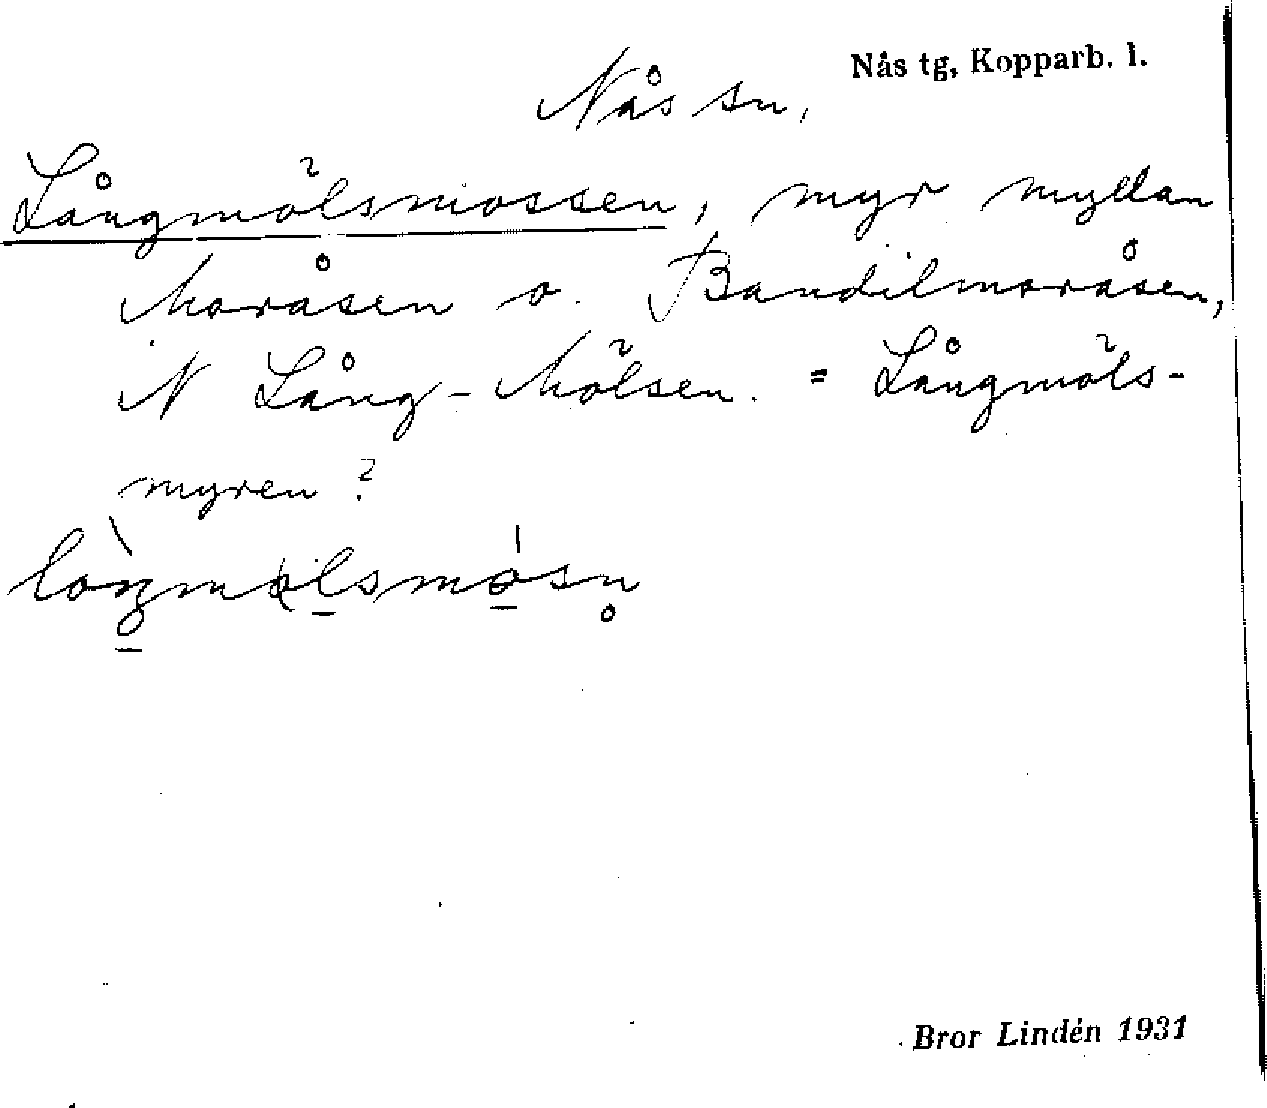 Nås tg, Kopparb. l.
Nås sn,
Långmölsmossen, myr myllan
Moråsen o. Bandilmoråsen,
N Lång-Mölsen. = Långmöls-
myren?
Bror Lindén 1931